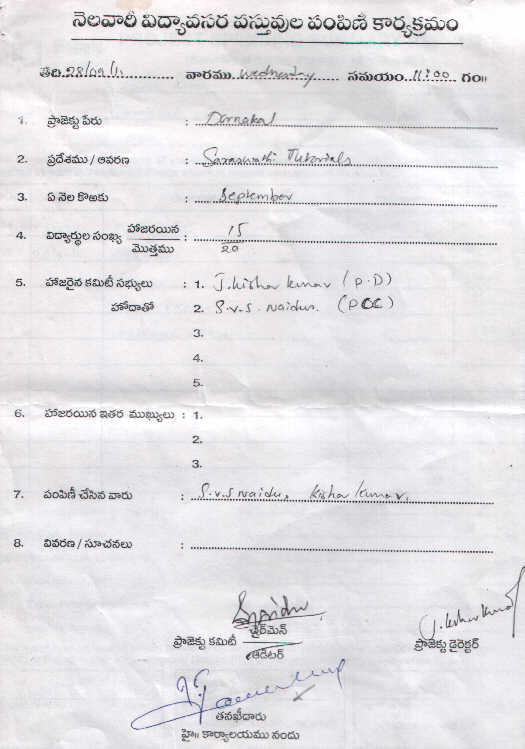 నెలవారీ విద్యావసర వస్తువుల పంపిణీ కార్యక్రమం
తేది.28/09/11 వారము Wednesday సమయం 11:00 గం॥
1. ప్రాజెక్టు పేరు : Dornakal
2. ప్రదేశము / ఆవరణ : Saraswathi Tutorials
3. ఏ నెల కొఱకు : September
4. విద్యార్థుల సంఖ్య హాజరయిన / మొత్తము : 15 / 20
5. హాజరైన కమిటీ సభ్యులు : 1. J. Kishor Kumar (P.D)
హోదాతో 2. S.V.S. Naidu. (PCC)
3.
4.
5.
6. హాజరయిన ఇతర ముఖ్యులు : 1.
2.
3.
7. పంపిణీ చేసిన వారు : S.V.S Naidu, Kishor Kumar.
8. వివరణ / సూచనలు :
Naidu
J. Kishor Kumar
ప్రాజెక్టు కమిటీ ఛైర్‌మెన్ / ఆడిటర్
ప్రాజెక్టు డైరెక్టర్
తనఖీదారు
హై॥ కార్యాలయము నందు